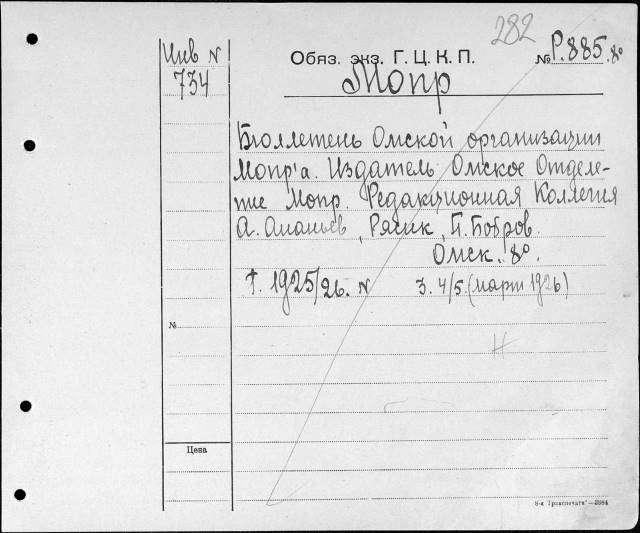 282
Инв N
734
Обяз. экз. Г. Ц. К. П.
№ Р.885. 8º
Мопр
Бюллетень Омской организации
Мопр'а. Издатель Омское Отделе-
ние Мопр. Редакционная Коллегия
А. Ананьев, П. Бобров.
Омск. 8º.
1925/26. N 3. 4/5. (март 1926)
№
Н
Цена
8-я "Транспечати"—2984